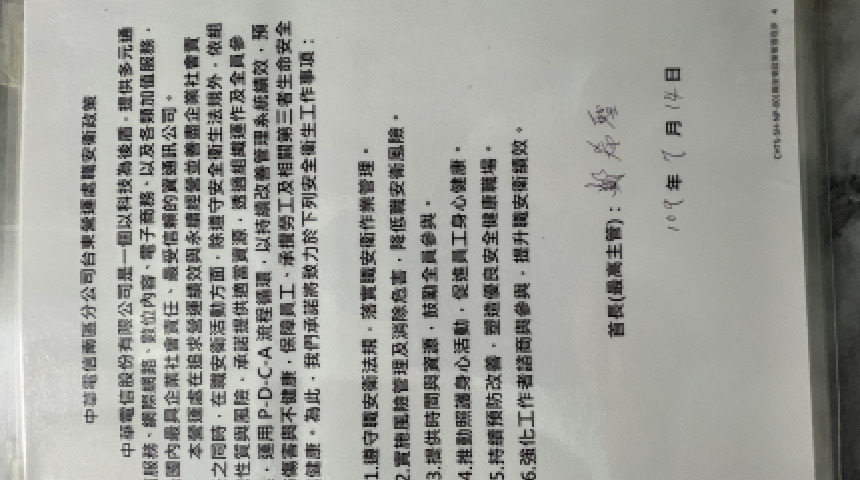 中華電信南區分公司台東營運處職安衛政策
中華電信股份有限公司是一個以科技為後盾，提供多元通
服務、網際網路、數位內容、電子商務，以及各類加值服務，
國內最具企業社會責任、最受信賴的資通訊公司。
本營運處在追求營運績效與永續經營並善盡企業社會責
之同時，在職安衛活動方面，除遵守安全衛生法規外，依組
性質與風險，承諾提供適當資源，透過組織運作及全員參
，運用 P-D-C-A 流程循環，以持續改善管理系統績效，預
傷害與不健康，保障員工、承攬勞工及相關第三者生命安全
健康。為此，我們承諾將致力於下列安全衛生工作事項：
1.遵守職安衛法規，落實職安衛作業管理。
2.實施風險管理及消除危害，降低職安衛風險。
3.提供時間與資源，鼓勵全員參與。
4.推動照護身心活動，促進員工身心健康。
5.持續預防改善，塑造優良安全健康職場。
6.強化工作者諮商與參與，提升職安衛績效。
首長(最高主管)：
109 年 7 月 14 日